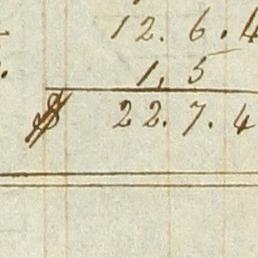 12. 6. 4
1, 5
$ 22. 7. 4